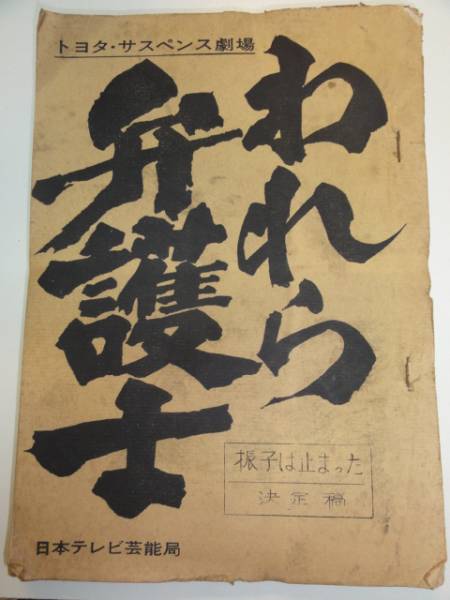 トヨタ・サスペンス劇場
われら
弁護士
振子は止まった
決定稿
日本テレビ芸能局